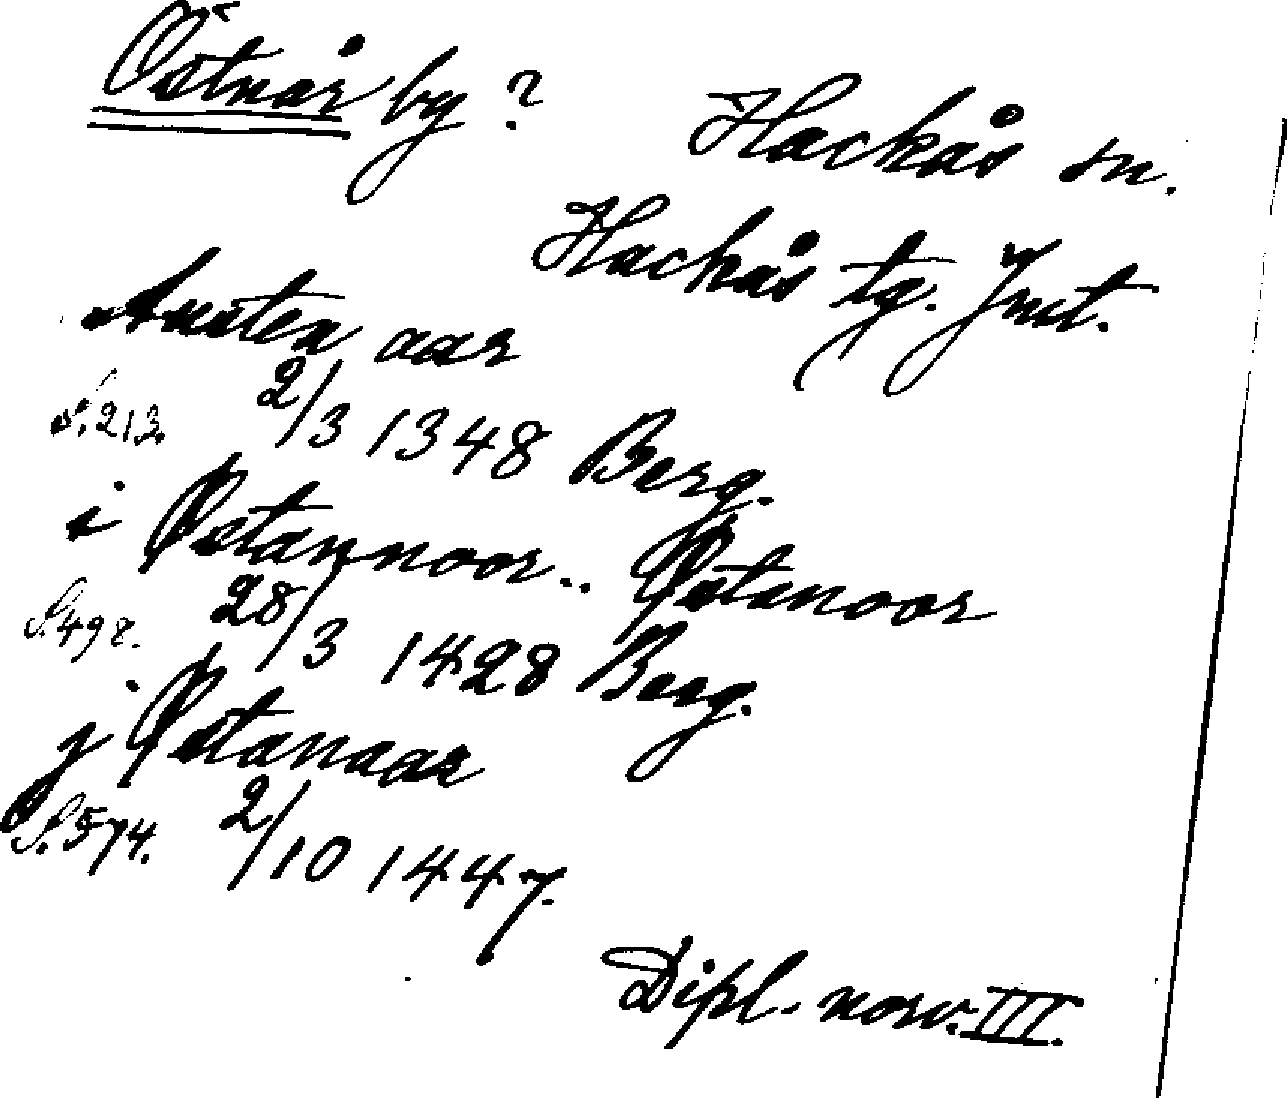 Östnår by?
Hackås sn.
Hackås tg. Jmt.
Austen aar
S. 213. 2/3 1348 Berg.
i Østannoor.. Østanoor
S. 498. 28/3 1428 Berg.
j Østanaar
S. 574. 2/10 1447.
Dipl. norv. III.